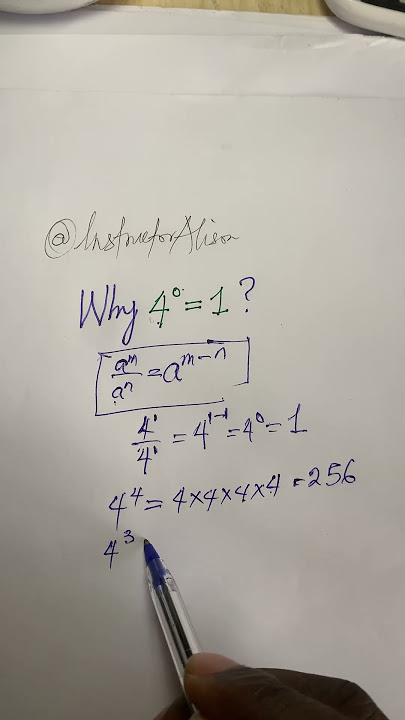 @InstructorAlison
Why 4⁰ = 1 ?
aᵐ/aⁿ = aᵐ⁻ⁿ
4¹/4¹ = 4¹⁻¹ = 4⁰ = 1
4⁴ = 4×4×4×4 = 256
4³